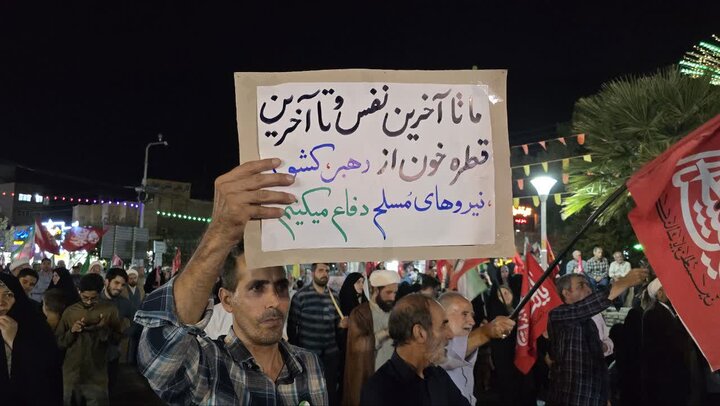 ما تا آخرین نفس و تا آخرین
قطره خون از رهبر، کشور
، نیروهای مُسلح دفاع میکنیم